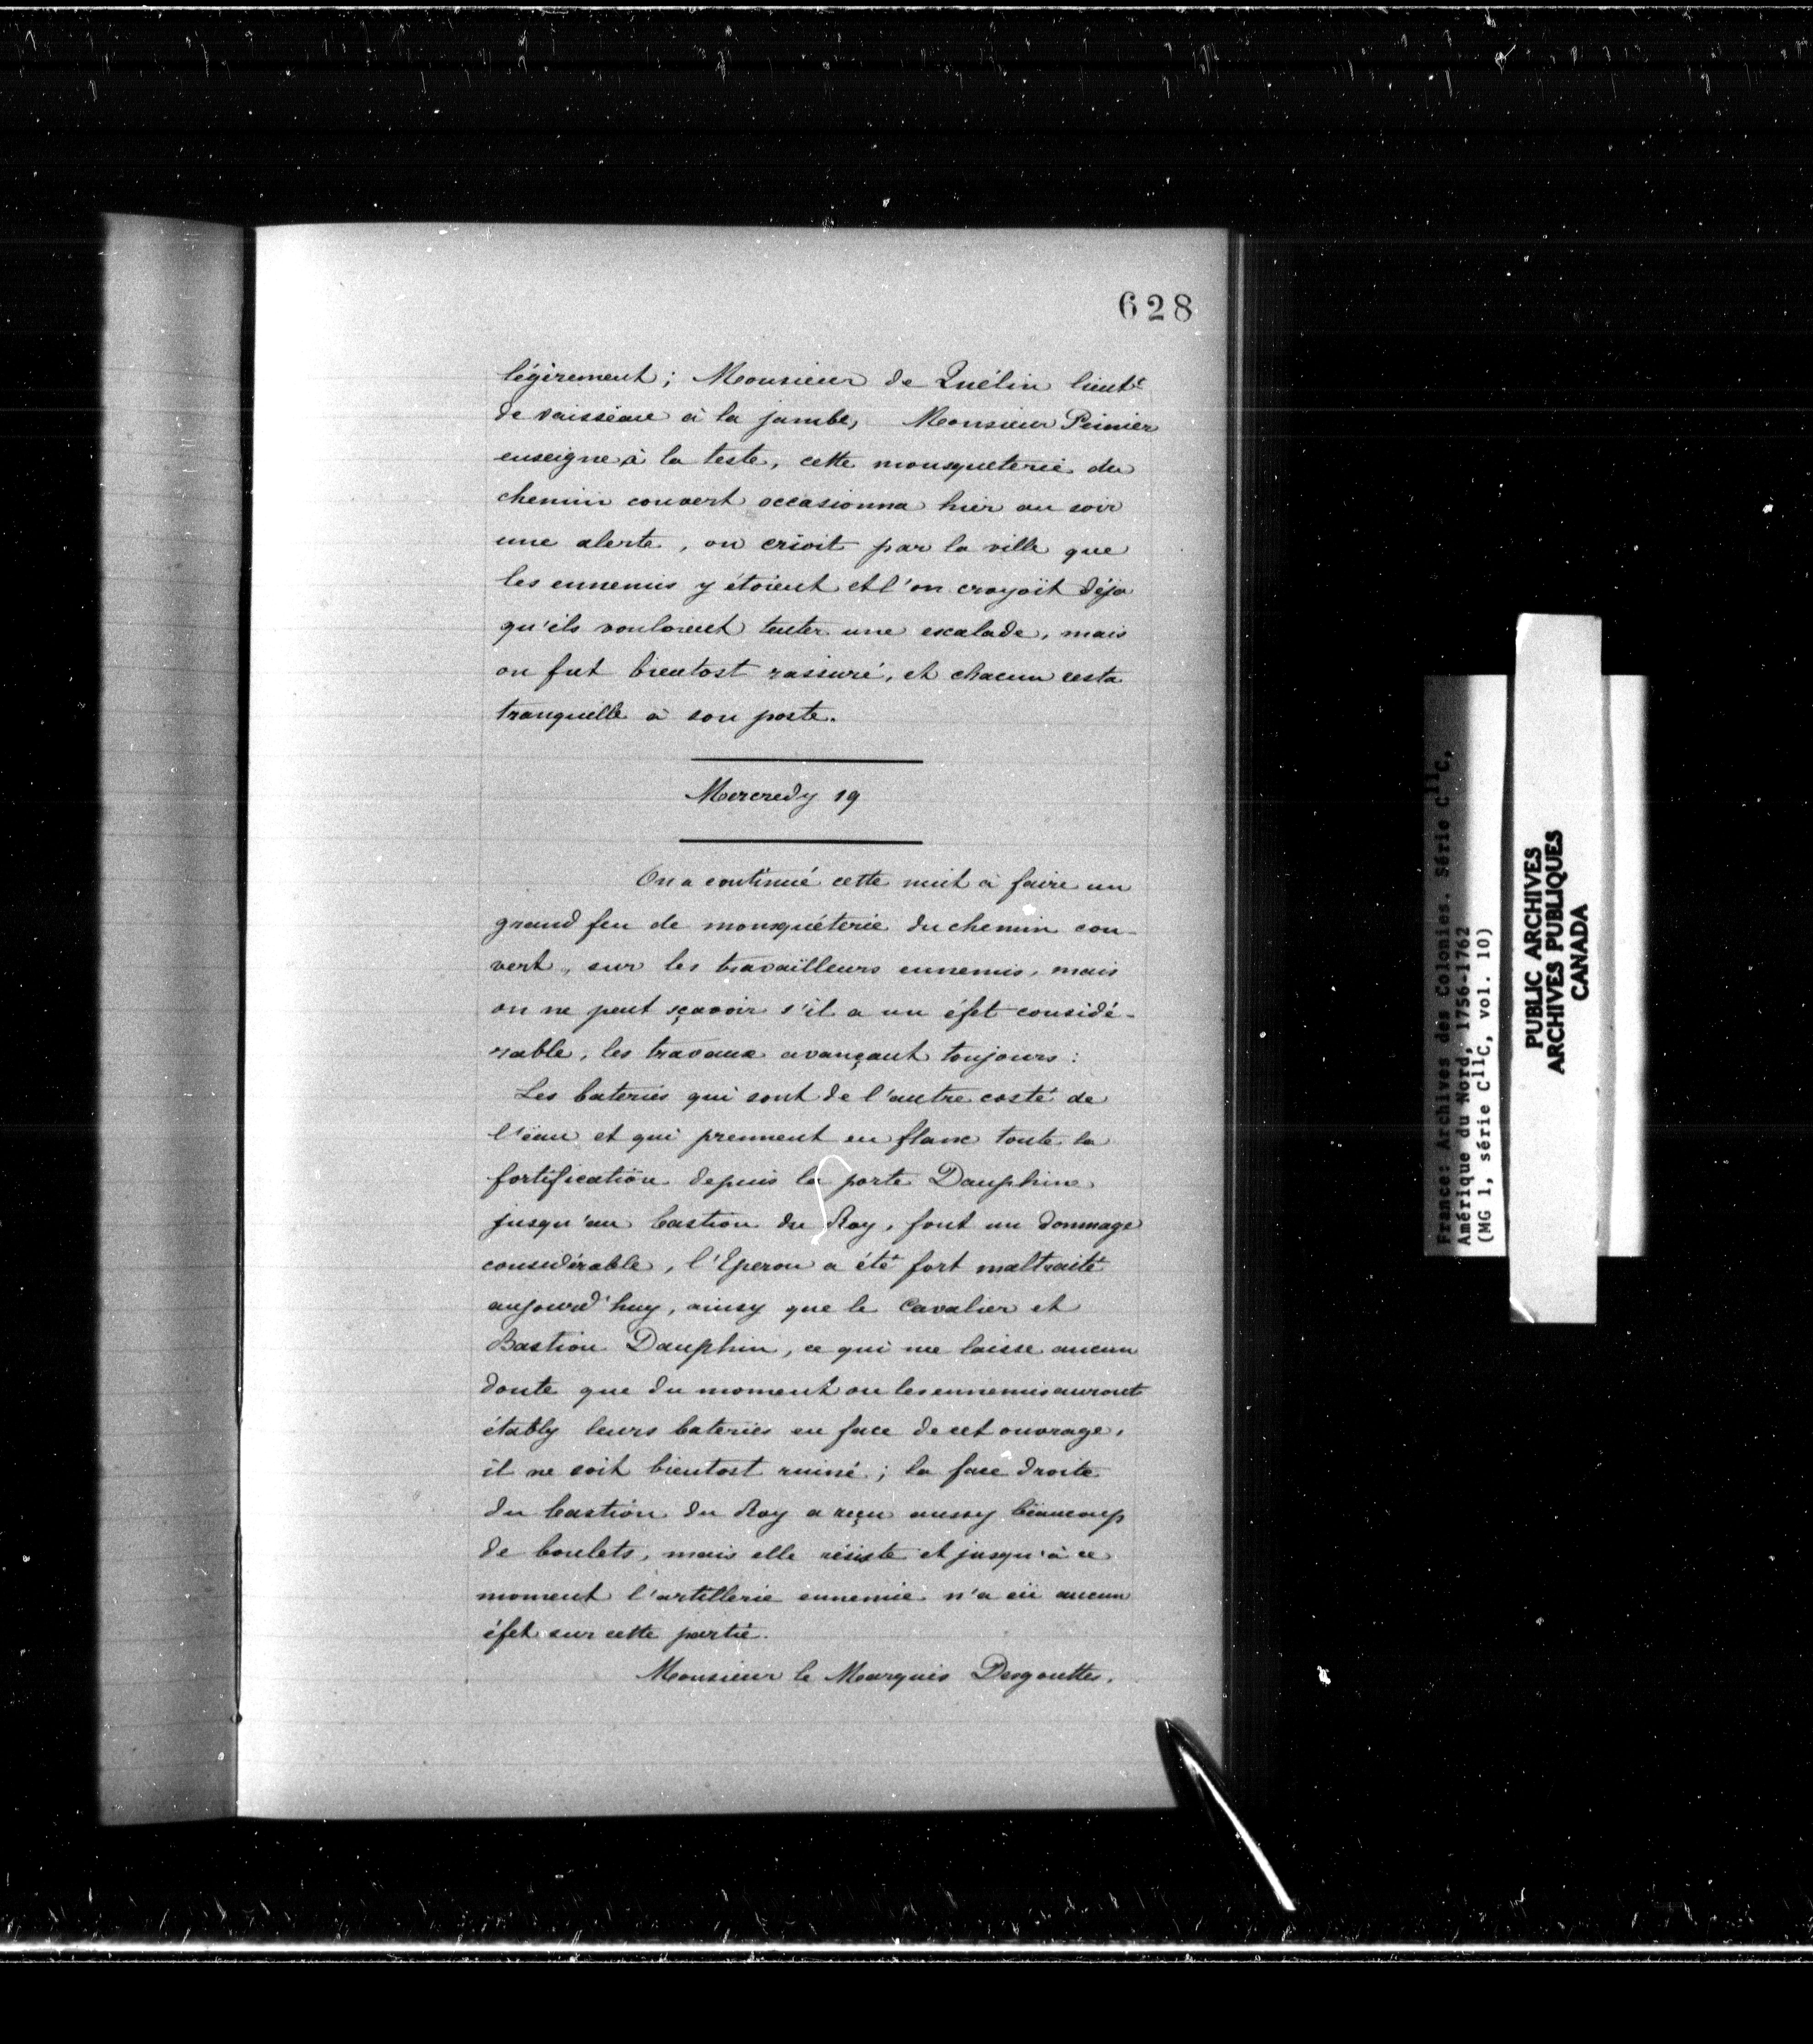 628
légèrement; Monsieur de Quélin lieut.t
de vaisseau à la jambe, Monsieur Peinier
enseigne à la teste, cette mousqueterie du
chemin couvert occasionna hier au soir
une alerte, on crioit par la ville que
les ennemis y étoient et l'on croyoit déja
qu'ils vouloient tenter une escalade, mais
on fut bientost rassuré, et chacun resta
tranquille à son poste.
Mercredy 19
On a continué cette nuit à faire un
grand feu de mousquéterie du chemin cou-
vert, sur les travailleurs ennemis, mais
on ne peut sçavoir s'il a un éfet considé-
rable, les travaux avançant toujours:
Les bateries qui sont de l'autre costé de
l'eau et qui prennent en flanc toute la
fortification depuis la porte Dauphine
jusqu'au bastion du Roy, font un dommage
considérable, l'Eperon a été fort maltraité
aujourd'huy, ainsy que le Cavalier et
Bastion Dauphin, ce qui me laisse aucun
doute que du moment ou les ennemis auront
étably leurs bateries en face de cet ouvrage,
il ne soit bientost ruiné; la face droite
du bastion du Roy a reçu aussy beaucoup
de boulets, mais elle résiste et jusqu'à ce
moment l'artillerie ennemie n'a eü aucun
éfet sur cette partie.
Monsieur le Marquis Desgouttes,
France: Archives des Colonies. Série C11C,
Amérique du Nord, 1756-1762
(MG 1, série C11C, vol. 10)
PUBLIC ARCHIVES
ARCHIVES PUBLIQUES
CANADA